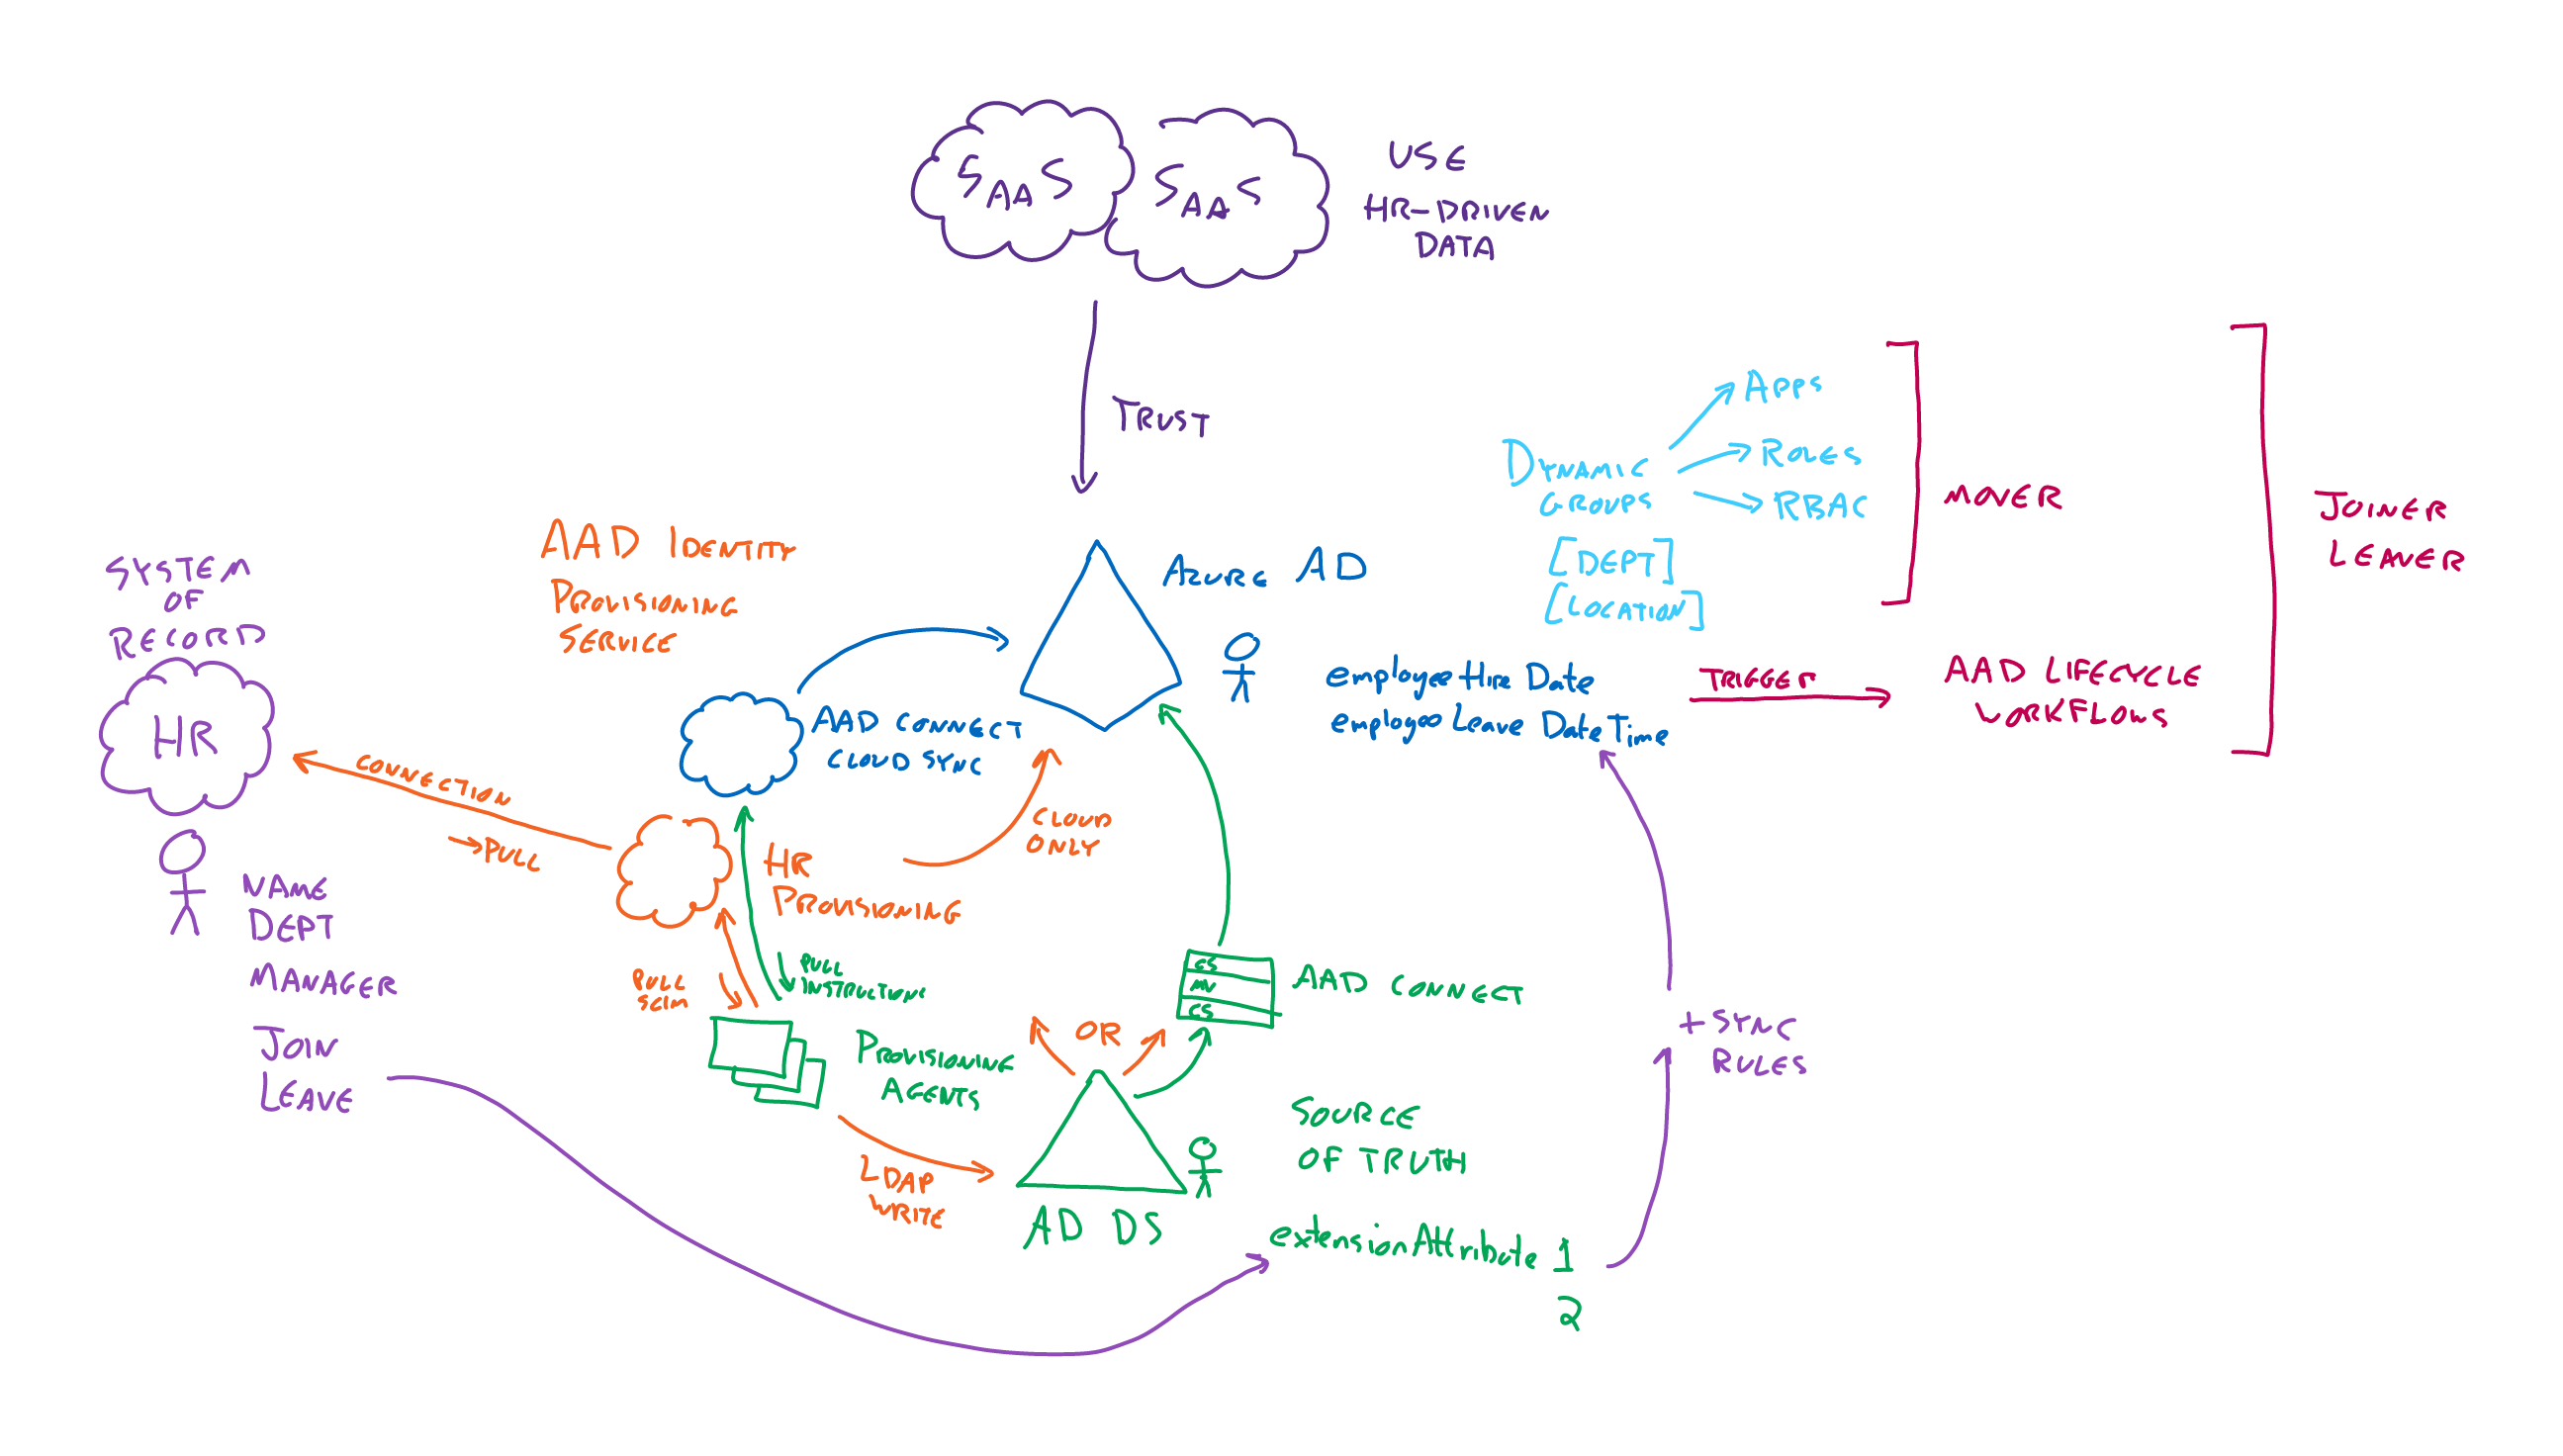 SAAS
SAAS
USE
HR-DRIVEN
DATA
TRUST
APPS
DYNAMIC
GROUPS
ROLES
RBAC
[DEPT]
[LOCATION]
MOVER
JOINER
LEAVER
AAD IDENTITY
PROVISIONING
SERVICE
AZURE AD
SYSTEM
OF
RECORD
HR
employeeHireDate
employeeLeaveDateTime
TRIGGER
AAD LIFECYCLE
WORKFLOWS
AAD CONNECT
CLOUD SYNC
CONNECTION
→PULL
CLOUD
ONLY
HR
PROVISIONING
NAME
DEPT
MANAGER
JOIN
LEAVE
PULL
SCIM
PULL
INSTRUCTIONS
CS
MV
CS
AAD CONNECT
OR
PROVISIONING
AGENTS
+ SYNC
RULES
SOURCE
OF TRUTH
LDAP
WRITE
AD DS
extensionAttribute 1
2